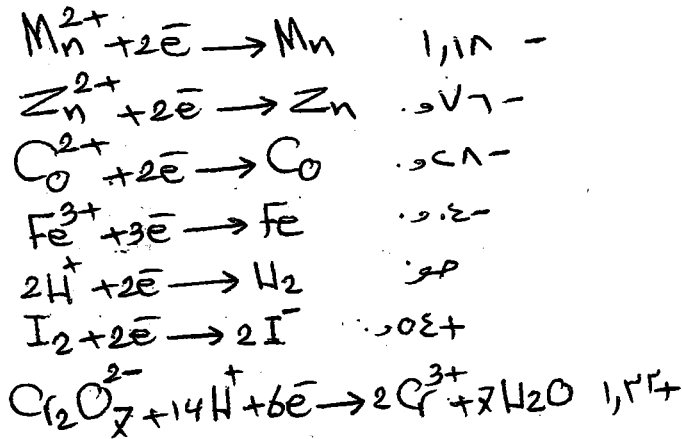 Mn²⁺ + 2e̅ → Mn ١,١٨ -
Zn²⁺ + 2e̅ → Zn ٠,٧٦ -
Co²⁺ + 2e̅ → Co ٠,٢٨ -
Fe³⁺ + 3e̅ → Fe ٠,٠٤ -
2H⁺ + 2e̅ → H₂ صفر
I₂ + 2e̅ → 2I⁻ ٠,٥٤ +
Cr₂O₇²⁻ + 14H⁺ + 6e̅ → 2Cr³⁺ + 7H₂O ١,٣٣ +